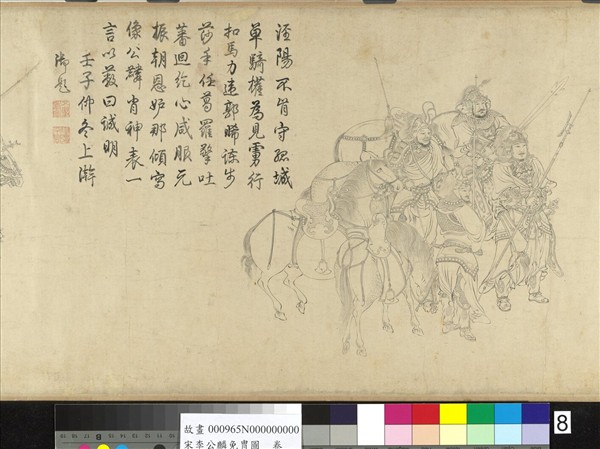 涇陽不肯守孤城
單騎權為見虜行
扣馬力違郭晞諫步
莎手任葛羅擎吐
蕃迴紇心咸服元
振朝恩妒那傾寫
像公麟肖神表一
言以蔽曰誠明
壬子仲冬上澣
御題
8
故畫 000965N000000000
宋李公麟免冑圖 卷